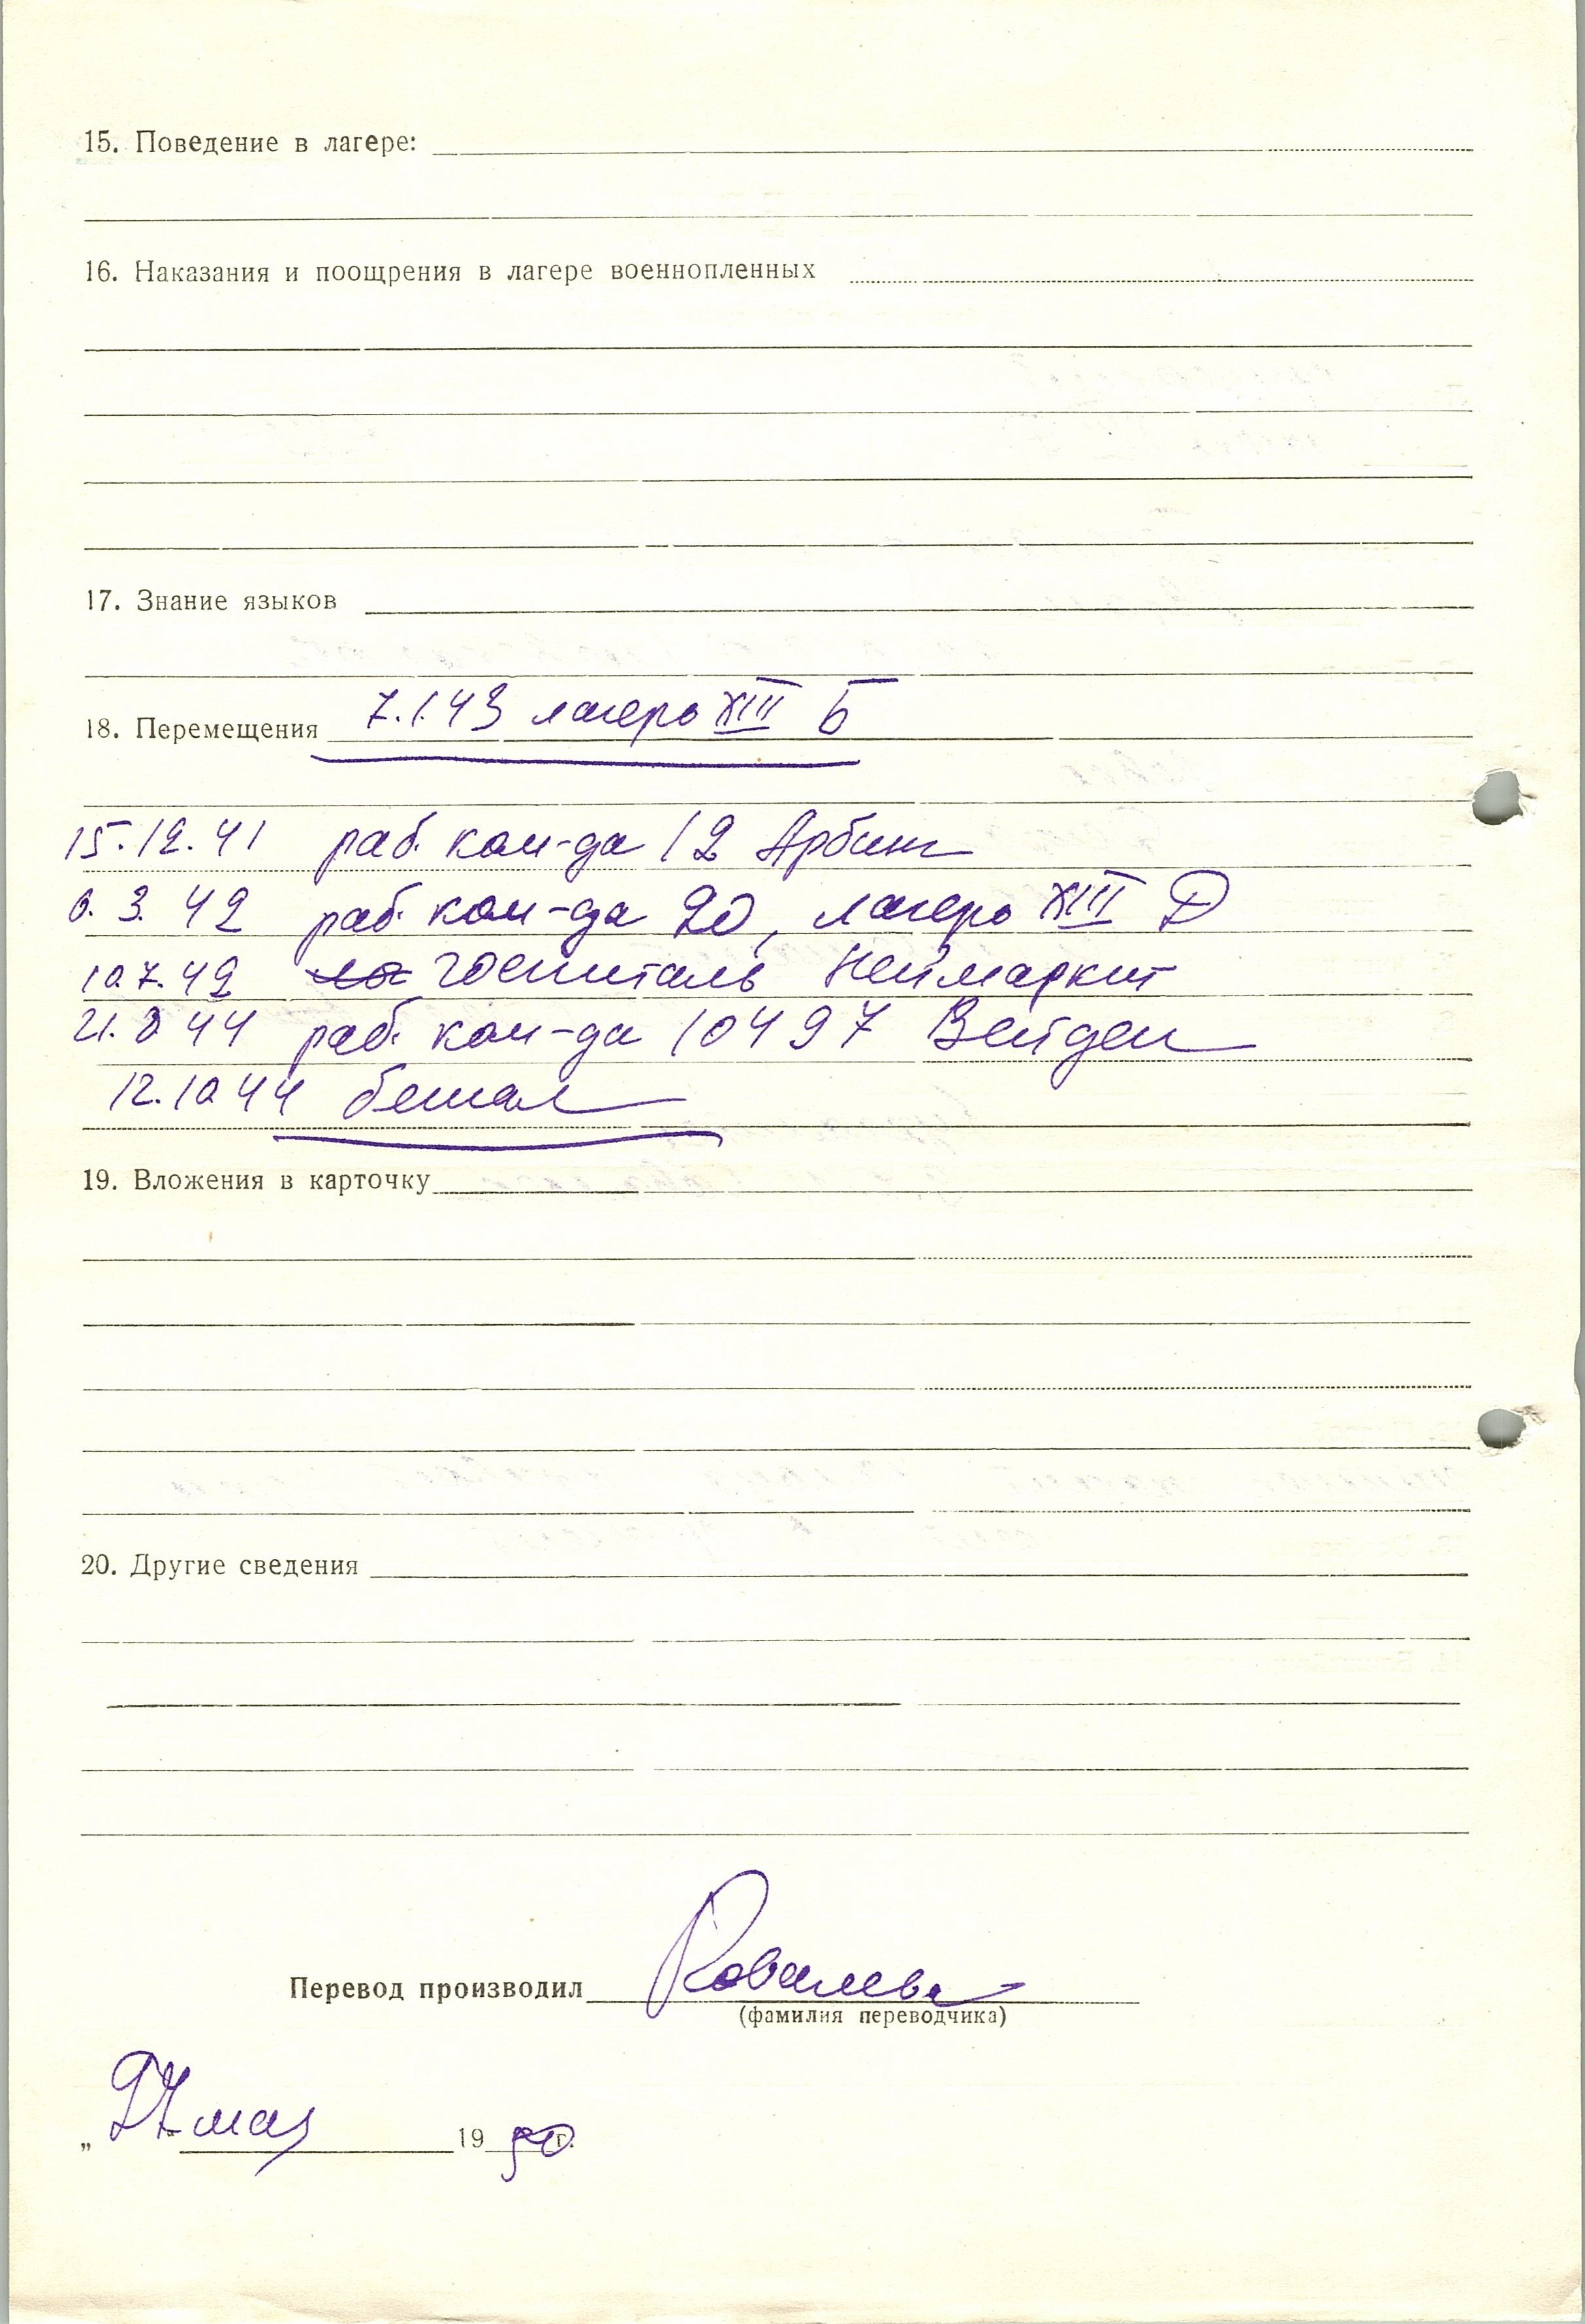 15. Поведение в лагере:
16. Наказания и поощрения в лагере военнопленных
17. Знание языков
18. Перемещения 7.1.43 лагерь XIII Б
15.12.41 раб. ком-да 12 Арбинг
6. 3. 42 раб. ком-да 20, лагерь XIII Д
10.7.42 госпиталь Неймаркт
21.8 44 раб. ком-да 10497 Вейден
12.10 44 бежал
19. Вложения в карточку
20. Другие сведения
Перевод производил Ковалева
(фамилия переводчика)
„ 27 мая 1950 г.